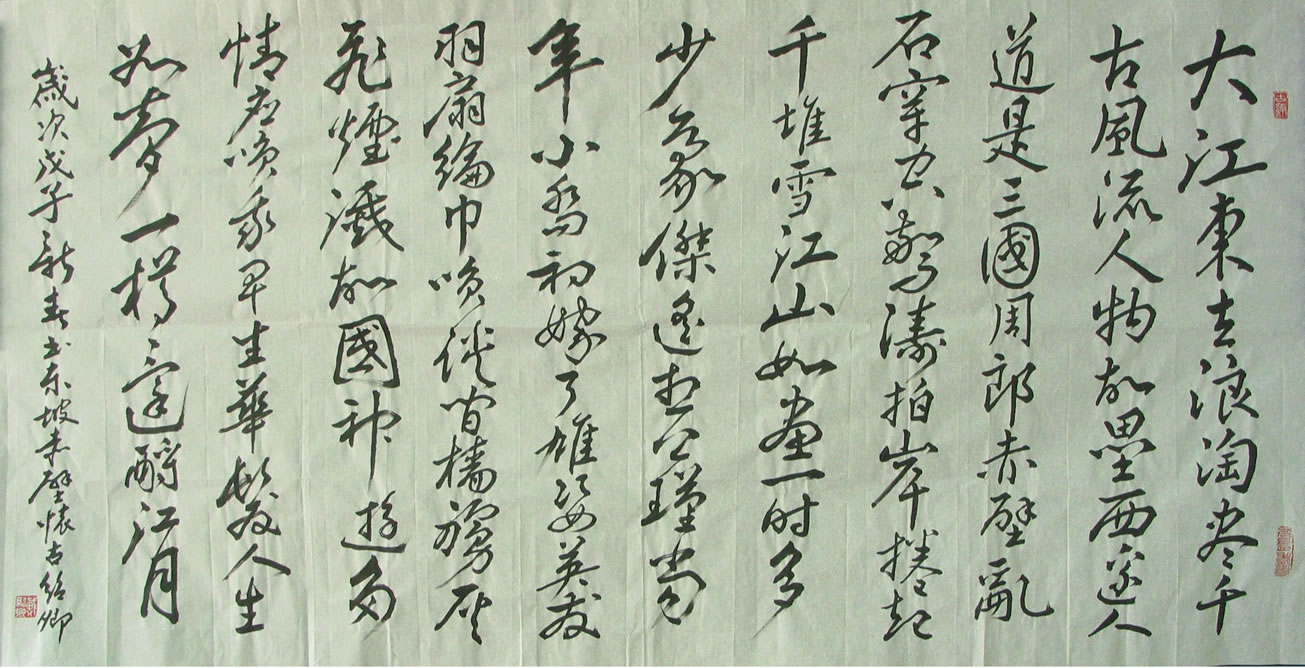 大江東去浪淘尽千
古風流人物故壘西邊人
道是三國周郎赤壁亂
石穿空驚濤拍岸捲起
千堆雪江山如畫一時多
少豪傑遙想公瑾當
年小喬初嫁了雄姿英发
羽扇綸巾咲談間檣虜灰
飛煙滅故國神遊多
情應咲我早生華髮人生
如夢一樽還酹江月
歲次戊子新春书东坡赤壁懷古紹卿